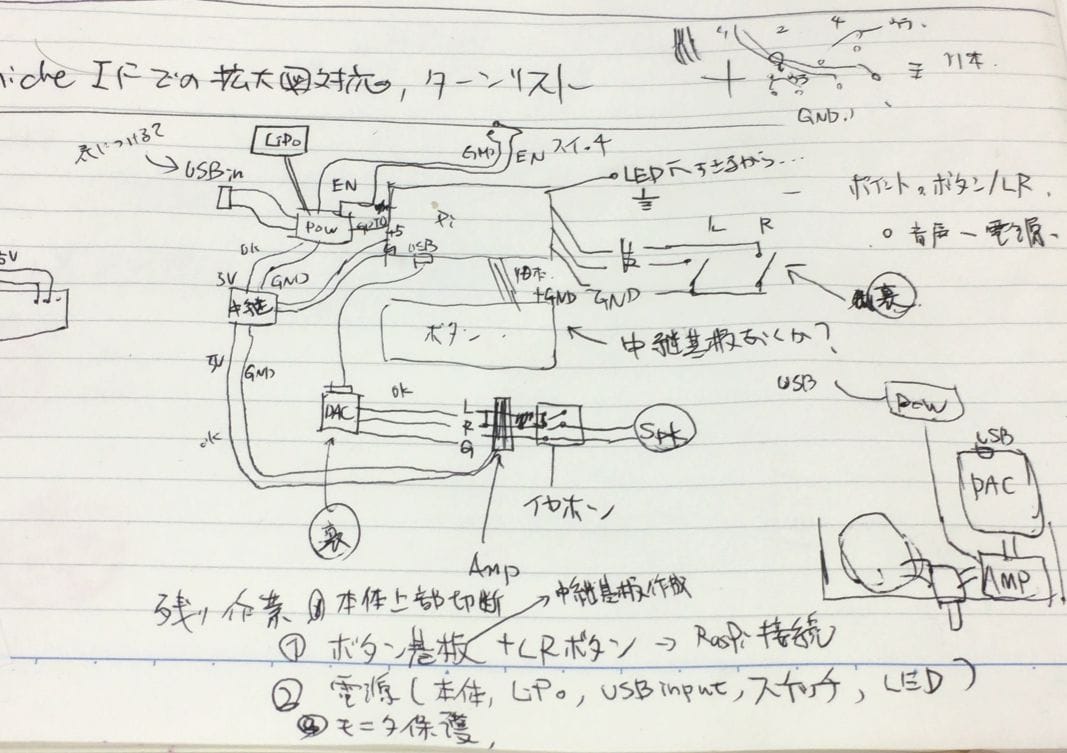 iche IFでの拡大図対応, ターンリスト
2
4
11本.
GND
表につける?
LiPo
GND
EN スイッチ
USB in
EN
POW
Pi
+5
USB
LED 穴すきるから...
L R
ポイント。ボタン/LR.
○ 音声ー電源ー
OK
5V
GND
5V
中継
+GND
GND
裏
ボタン
中継基板おくか?
5V
GND
OK
OK
DAC
L
R
G
SPK
USB
POW
USB
DAC
AMP
裏
Amp
イヤホーン
残り作業 ⓪ 本体上部切断
中継基板作成
① ボタン基板 +LRボタン → RasPi 接続
② 電源(本体, LiPo, USB input, スイッチ, LED)
③ モニタ保護,